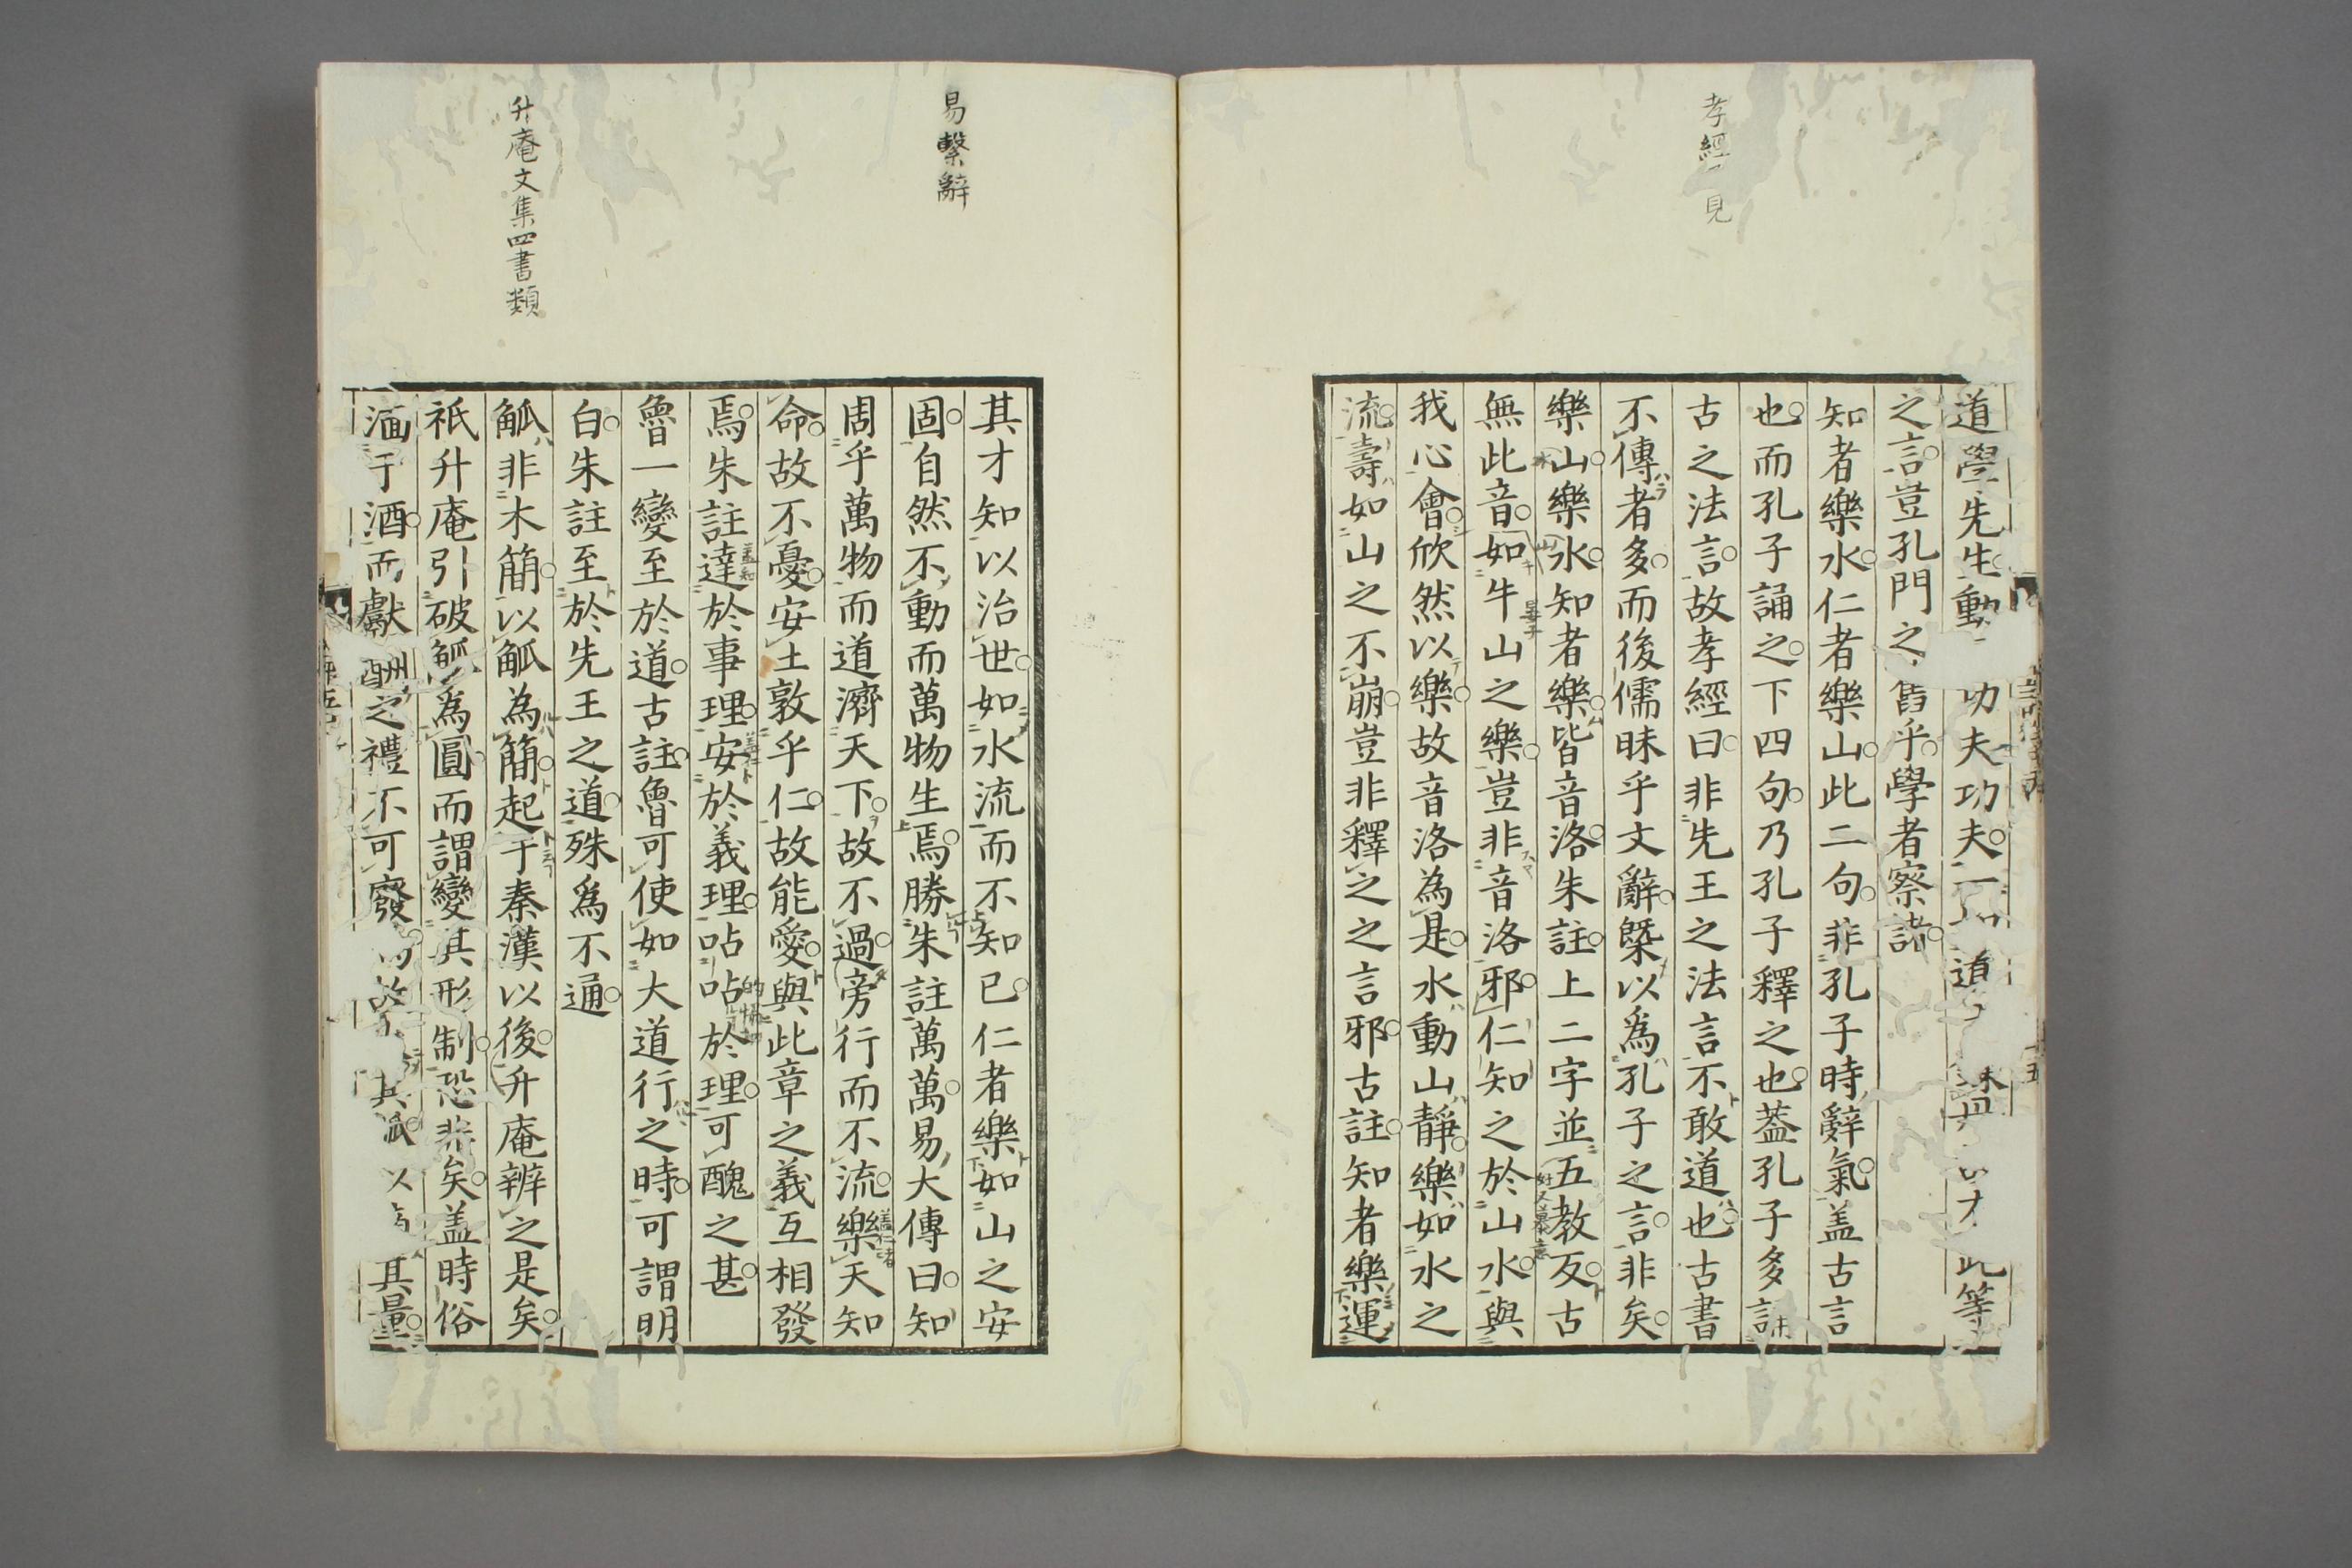 孝經 見
道學先生動 功夫功夫 道 此等
之言豈孔門之舊乎學者察諸
知者樂水仁者樂山此二句非孔子時辭氣盖古言
也而孔子誦之下四句乃孔子釋之也葢孔子多誦
古之法言故孝經曰非先王之法言不敢道也古書
不傳者多而後儒昧乎文辭槩以爲孔子之言非矣
樂山樂水知者樂皆音洛朱註上二字並五教反古
無此音如牛山之樂豈非音洛邪仁知之於山水與
我心會欣然以樂故音洛為是水動山靜樂如水之
流壽如山之不崩豈非釋之之言邪古註知者樂運
易繫辭
升庵文集四書類
其才知以治世如水流而不知已仁者樂如山之安
固自然不動而萬物生焉勝朱註萬萬易大傳曰知
周乎萬物而道濟天下故不過旁行而不流樂天知
命故不憂安土敦乎仁故能愛與此章之義互相發
焉朱註達於事理安於義理呫呫於理可醜之甚
魯一變至於道古註魯可使如大道行之時可謂明
白朱註至於先王之道殊爲不通
觚非木簡以觚為簡起于秦漢以後升庵辨之是矣
祇升庵引破觚爲圓而謂變其形制恐非矣盖時俗
湎于酒而獻酬之禮不可廢 故 其觚以 其量